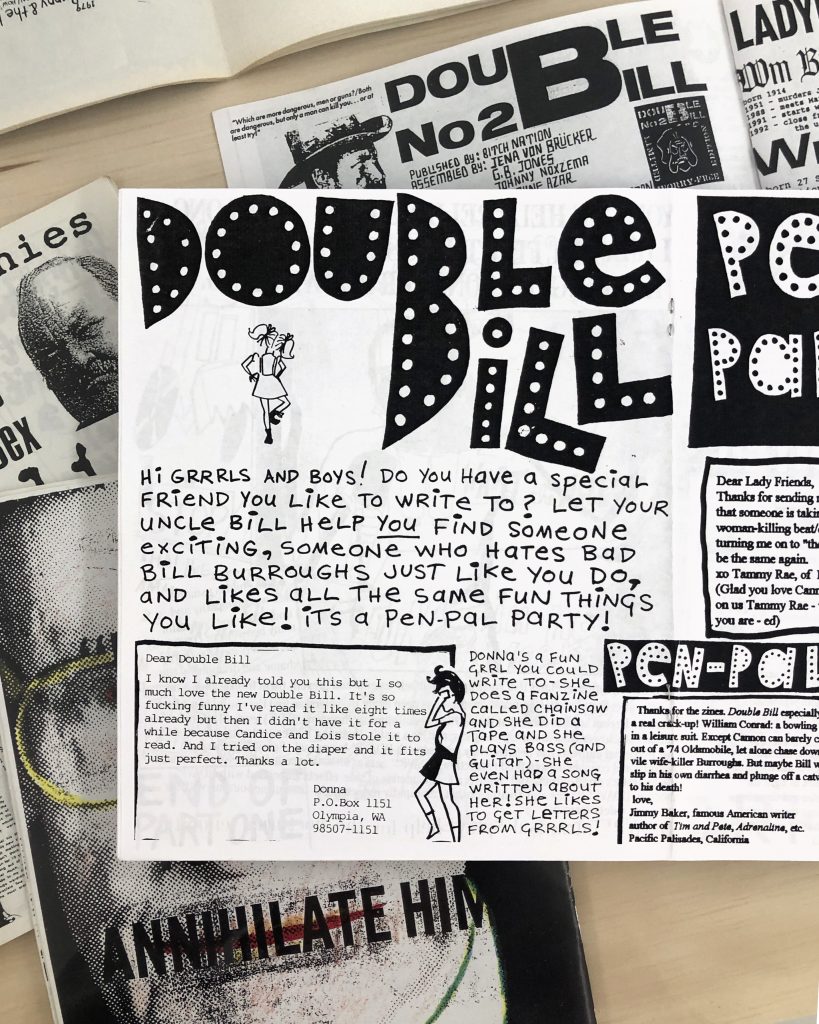 1979
"Which are more dangerous, men or guns?/Both
are dangerous, but only a man can kill you... or at
least try!"
DOUBLE
BILL
No 2
PUBLISHED BY: BITCH NATION
ASSEMBLED BY: JENA VON BRÜCKER
G.B. JONES
JOHNNY NOXZEMA
AZAR
LADY
Wm B
born 1914
1951 - murders J
1988 - meets
1991 - starts w
1992 - close f
the u
born 27 S
nies
Sex
DOUBLE
BILL
Hi GRRRLS AND BOYS! DO YOU HAVE a special
FRiEND YOU LiKE TO WRiTE TO? LET YOUR
UNCLE BiLL HELP YOU FiND SOMEONE
exCiTiNG, SOMEONE WHO HATES BAD
BiLL BURROUGHS JUST LiKE YOU DO,
AND LiKES ALL THE SAME FUN THiNGS
YOU LiKE! iTS A PeN-PAL PARTY!
Dear Double Bill
I know I already told you this but I so
much love the new Double Bill. It's so
fucking funny I've read it like eight times
already but then I didn't have it for a
while because Candice and Lois stole it to
read. And I tried on the diaper and it fits
just perfect. Thanks a lot.
Donna
P.O.Box 1151
Olympia, WA
98507-1151
DONNA'S A FUN
GRRL YOU COULD
WRiTE TO-SHE
DOES A FANZiNE
CALLED CHAiNSAW
AND SHE DiD A
TAPE AND SHE
PLAYS BASS (AND
GUiTAR)-SHE
EVEN HAD A SONG
WRiTTEN ABOUT
HER! SHE LiKES
TO GET LETTERS
FROM GRRRLS!
Pe
Pa
Dear Lady Friends,
Thanks for sending
that someone is takin
woman-killing beat/
turning me on to "th
be the same again.
xo Tammy Rae, of
(Glad you love Cann
on us Tammy Rae -
you are - ed)
PeN-PaL
Thanks for the zines. Double Bill especially
a real crack-up! William Conrad: a bowling
in a leisure suit. Except Cannon can barely c
out of a '74 Oldsmobile, let alone chase down
vile wife-killer Burroughs. But maybe Bill w
slip in his own diarrhea and plunge off a catw
to his death!
love,
Jimmy Baker, famous American writer
author of Tim and Pete, Adrenaline, etc.
Pacific Palisades, California
END OF
PART ONE
ANNIHILATE HIM